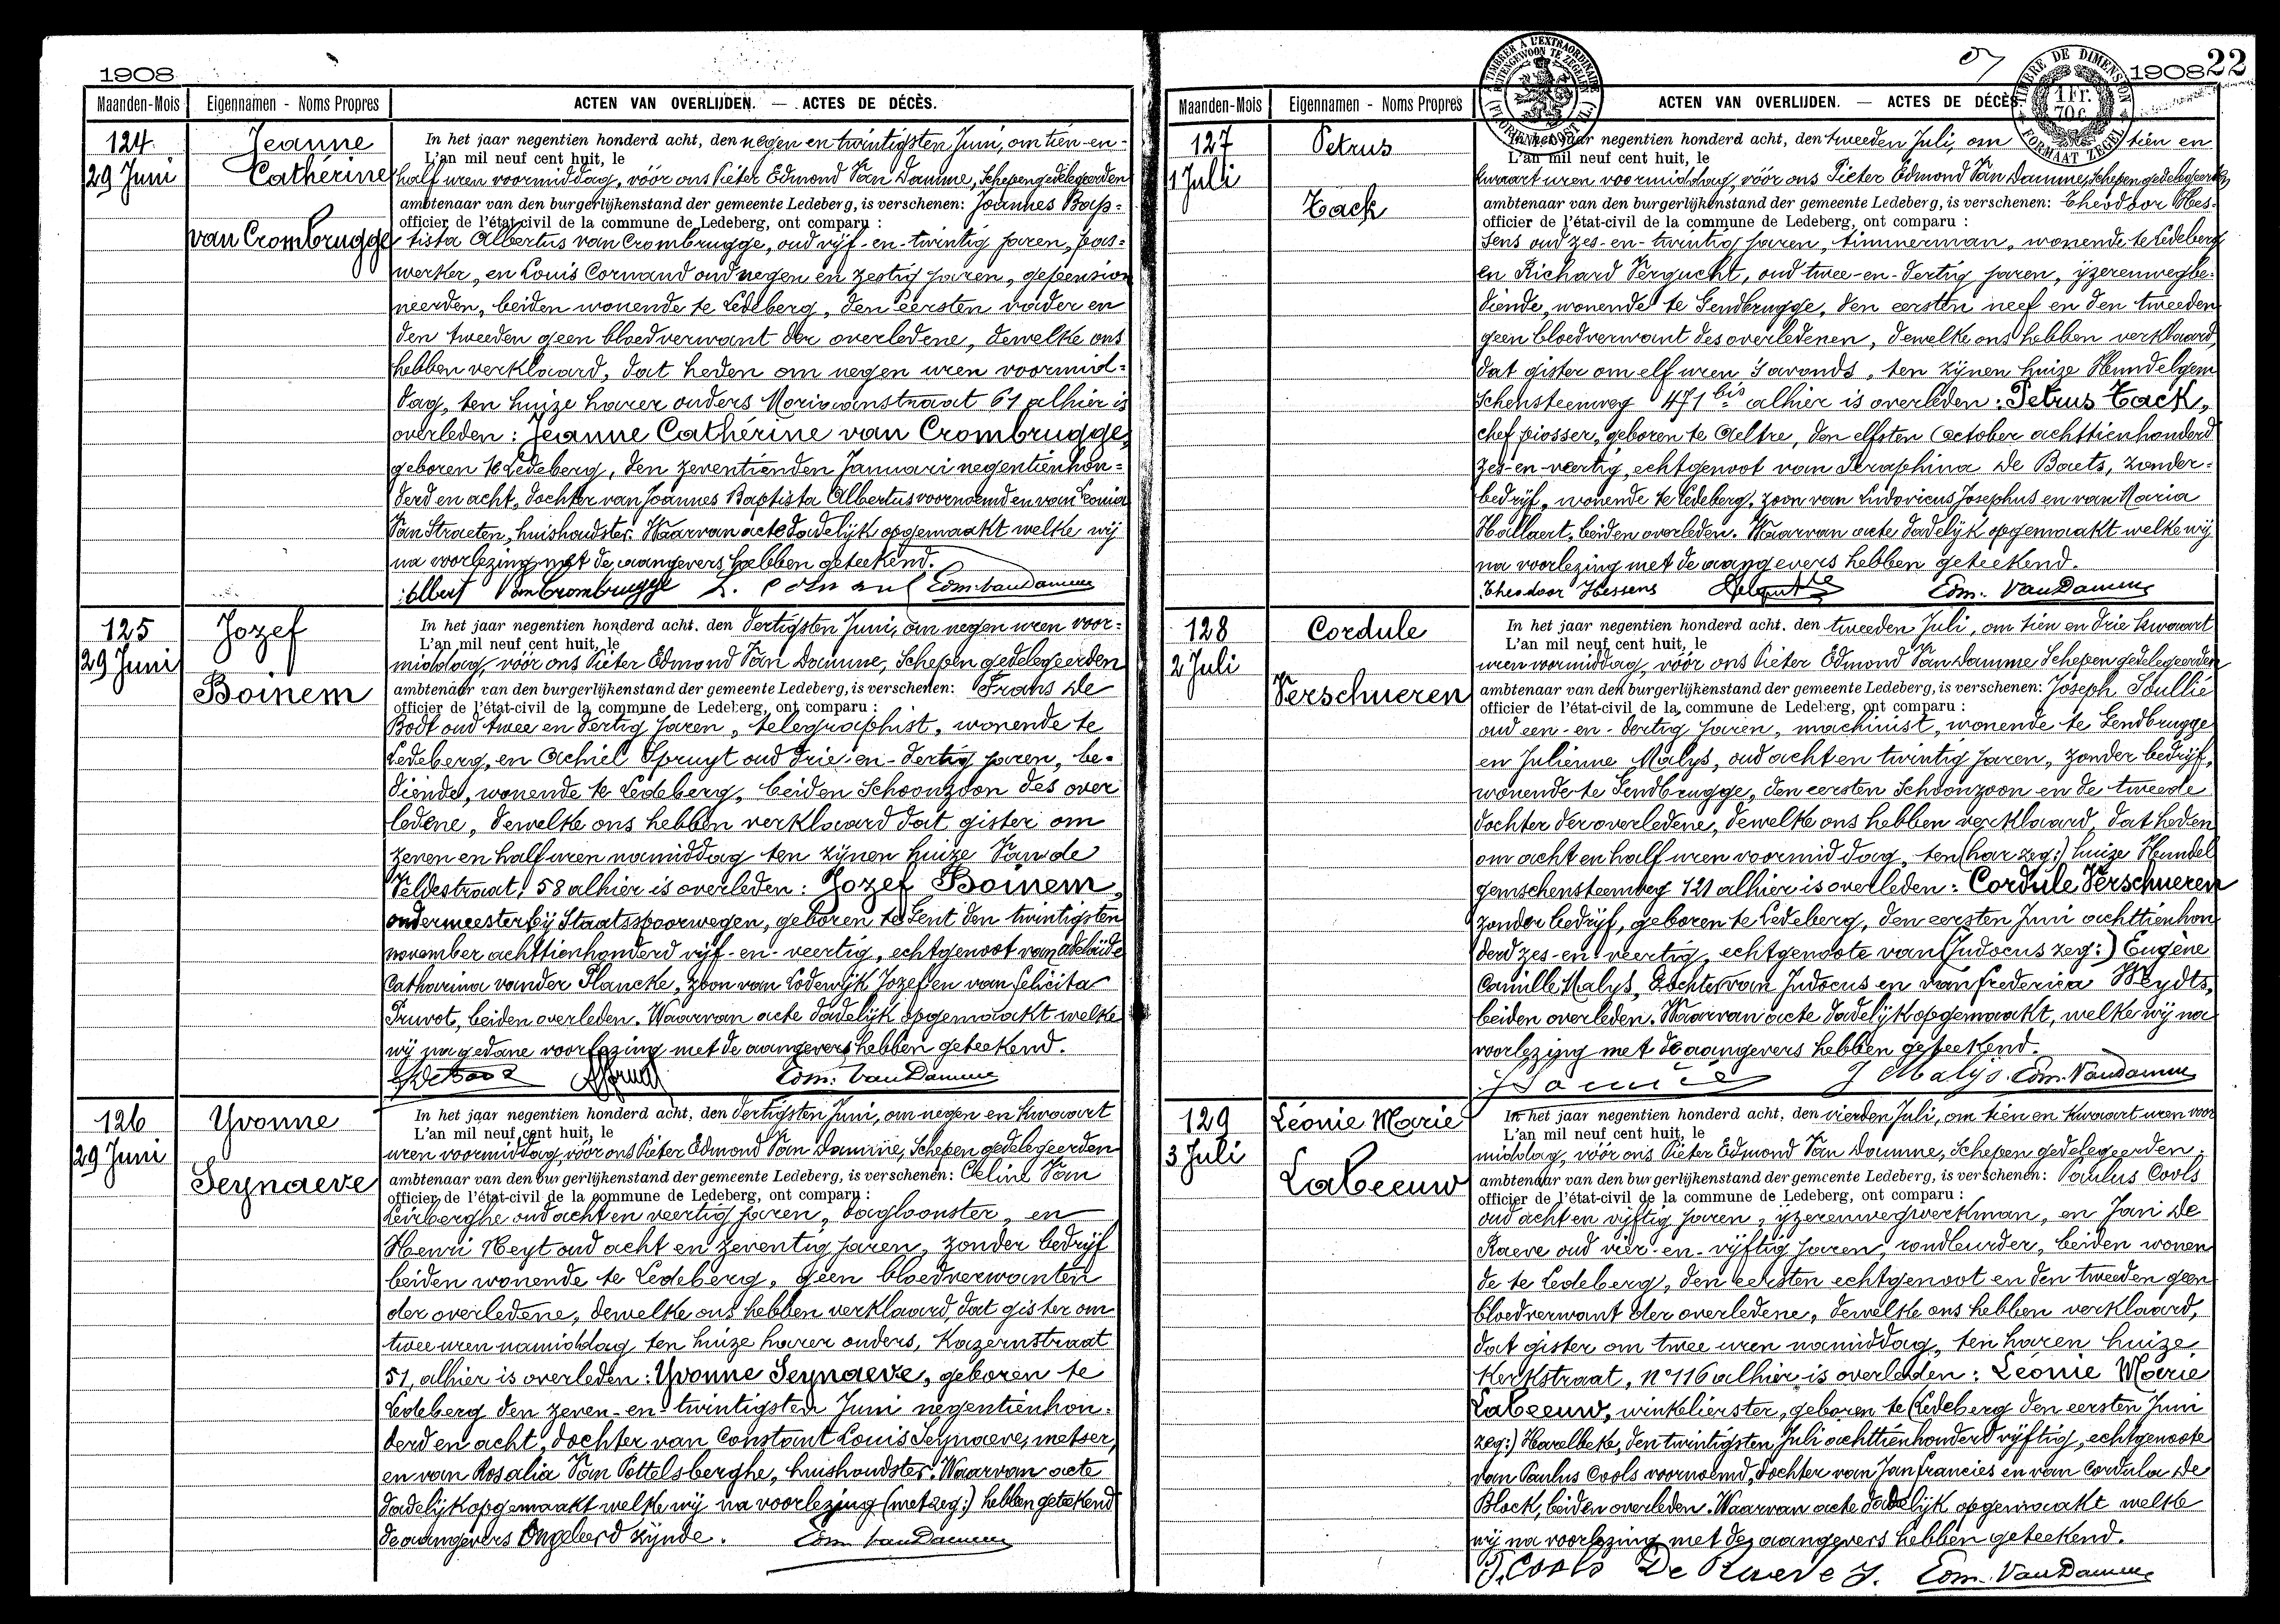 1908
Maanden-Mois Eigennamen - Noms Propres ACTEN VAN OVERLIJDEN. — ACTES DE DÉCÈS.
124
29 Juni
Jeanne
Cathérine
van Crombrugge
In het jaar negentien honderd acht, den negen en twintigsten Juni, om tien-en-
L'an mil neuf cent huit, le
half uren voormiddag, vóór ons Pieter Edmond Van Damme, Schepen gedelegeerden
ambtenaar van den burgerlijkenstand der gemeente Ledeberg, is verschenen: Joannes Bap=
officier de l'état-civil de la commune de Ledeberg, ont comparu :
tista Albertus van Crombrugge, oud vijf-en-twintig jaren, pas=
werker, en Louis Cornand oud negen en zestig jaren, gepension
neerden, beiden wonende te Ledeberg, den eersten vader en
den tweeden geen bloedverwant der overledene, dewelke ons
hebben verklaard, dat heden om negen uren voormid=
dag, ten huize harer ouders Moriaanstraat 61 alhier is
overleden: Jeanne Cathérine van Crombrugge,
geboren te Ledeberg, den zeventienden Januari negentienhon=
derd en acht, dochter van Joannes Baptista Albertus voornoemd en van Leonia
Van Straeten, huishoudster. Waarvan acte dadelijk opgemaakt welke wij
na voorlezing met de aangevers hebben geteekend.
Albert VanCrombrugge Edm. VanDamme
125
29 Juni
Jozef
Boinem
In het jaar negentien honderd acht, den dertigsten Juni, om negen uren voor=
L'an mil neuf cent huit, le
middag, vóór ons Pieter Edmond Van Damme, Schepen gedelegeerden
ambtenaar van den burgerlijkenstand der gemeente Ledeberg, is verschenen: Frans De
officier de l'état-civil de la commune de Ledeberg, ont comparu :
Bodt oud twee en dertig jaren, telegraphist, wonende te
Ledeberg, en Achiel Spruyt oud drie-en-dertig jaren, be=
diende, wonende te Ledeberg, beiden Schoonzoon des over
ledene, dewelke ons hebben verklaard dat gister om
zeven en half uren namiddag ten zijnen huize Van de
Veldestraat, 58 alhier is overleden: Jozef Boinem,
ondermeester bij Staatsspoorwegen, geboren te Gent den twintigsten
november achttienhonderd vijf-en-veertig, echtgenoot van Adelaïde
Catharina vander Plancke, zoon van Lodewijk Jozef en van Felicita
Pruvot, beiden overleden. Waarvan acte dadelijk opgemaakt welke
wij na gedane voorlezing met de aangevers hebben geteekend.
Edm. VanDamme
126
29 Juni
Yvonne
Seynaeve
In het jaar negentien honderd acht, den dertigsten Juni, om negen en kwaart
L'an mil neuf cent huit, le
uren voormiddag, vóór ons Pieter Edmond Van Damme, Schepen gedelegeerden
ambtenaar van den burgerlijkenstand der gemeente Ledeberg, is verschenen: Celine Van
officier de l'état-civil de la commune de Ledeberg, ont comparu :
Leirberghe oud acht en veertig jaren, dagloonster, en
Henri Heyt oud acht en zeventig jaren, zonder bedrijf
beiden wonende te Ledeberg, geen bloedverwanten
der overledene, dewelke ons hebben verklaard, dat gister om
twee uren namiddag ten huize harer ouders, Kazernstraat
51, alhier is overleden: Yvonne Seynaeve, geboren te
Ledeberg den zeven-en-twintigsten Juni negentienhon=
derd en acht, dochter van Constant Louis Seynaeve, metser,
en van Rosalia Van Pottelsberghe, huishoudster. Waarvan acte
dadelijk opgemaakt welke wij na voorlezing (met zeg:) hebben geteekend
de aangevers Ongeleerd zijnde. Edm. VanDamme
1908 22
TIMBRER A L'EXTRAORDINAIRE
TIMBRE DE DIMENSION
1 Fr.
70 c.
FORMAAT ZEGEL
Maanden-Mois Eigennamen - Noms Propres ACTEN VAN OVERLIJDEN. — ACTES DE DÉCÈS.
127
1 Juli
Petrus
Tack
In het jaar negentien honderd acht, den tweeden Juli, om tien en
L'an mil neuf cent huit, le
kwaart uren voormiddag, vóór ons Pieter Edmond Van Damme, Schepen gedelegeerden
ambtenaar van den burgerlijkenstand der gemeente Ledeberg, is verschenen: Theodoor Hes=
officier de l'état-civil de la commune de Ledeberg, ont comparu :
sens oud zes-en-twintig jaren, timmerman, wonende te Ledeberg
en Richard Vergucht, oud twee-en-dertig jaren, ijzerenwegbe=
diende, wonende te Gendbrugge, den eersten neef en den tweeden
geen bloedverwant des overledenen, dewelke ons hebben verklaard,
dat gister om elf uren 's avonds, ten zijnen huize Hundelgem
schensteenweg 471 bis alhier is overleden: Petrus Tack,
chef piosser, geboren te Aeltre, den elfsten October achttienhonderd
zes-en-veertig, echtgenoot van Seraphina De Baets, zonder=
bedrijf, wonende te Ledeberg, zoon van Ludovicus Josephus en van Maria
Hallaert, beiden overleden. Waarvan acte dadelijk opgemaakt welke wij
na voorlezing met de aangevers hebben geteekend.
Theodoor Hessens Edm. VanDamme
128
2 Juli
Cordule
Verschueren
In het jaar negentien honderd acht, den tweeden Juli, om tien en drie kwaart
L'an mil neuf cent huit, le
uren voormiddag, vóór ons Pieter Edmond Van Damme Schepen gedelegeerden
ambtenaar van den burgerlijkenstand der gemeente Ledeberg, is verschenen: Joseph Soullié
officier de l'état-civil de la commune de Ledeberg, ont comparu :
oud een-en-dertig jaren, machinist, wonende te Gendbrugge
en Julienne Malys, oud acht en twintig jaren, zonder bedrijf,
wonende te Gendbrugge, den eersten Schoonzoon en de tweede
dochter der overledene, dewelke ons hebben verklaard, dat heden
om acht en half uren voormiddag, ten (har zeg:) huize Hundel
gemschensteenweg 121 alhier is overleden: Cordule Verschueren
zonder bedrijf, geboren te Ledeberg, den eersten Juni achttienhon
derd zes-en-veertig, echtgenoote van (Judocus zeg:) Eugène
Camille Malys, dochter van Judocus en van Frederica Weydts,
beiden overleden. Waarvan acte dadelijk opgemaakt, welke wij na
voorlezing met de aangevers hebben geteekend.
J Malys. Edm. VanDamme
129
3 Juli
Léonie Marie
Labeeuw
In het jaar negentien honderd acht, den vierden Juli, om tien en kwaart uren voor
L'an mil neuf cent huit, le
middag, vóór ons Pieter Edmond Van Damme, Schepen gedelegeerden
ambtenaar van den burgerlijkenstand der gemeente Ledeberg, is verschenen: Paulus Cools
officier de l'état-civil de la commune de Ledeberg, ont comparu :
oud acht en vijftig jaren, ijzerenwegwerkman, en Jan De
Raeve oud vier-en-vijftig jaren, rondleurder, beiden wonen
de te Ledeberg, den eersten echtgenoot en den tweeden geen
bloedverwant der overledene, dewelke ons hebben verklaard,
dat gister om twee uren namiddag, ten haren huize
Kerkstraat, n° 116 alhier is overleden: Léonie Marie
Labeeuw, winkelierster, geboren te (Ledeberg den eersten Juni
zeg:) Harelbeke, den twintigsten Juli achttienhonderd vijftig, echtgenoote
van Paulus Cools voornoemd, dochter van Jan francies en van Cordula De
Block, beiden overleden. Waarvan acte dadelijk opgemaakt welke
wij na voorlezing met de aangevers hebben geteekend.
P. Cools De Raeve J. Edm. VanDamme